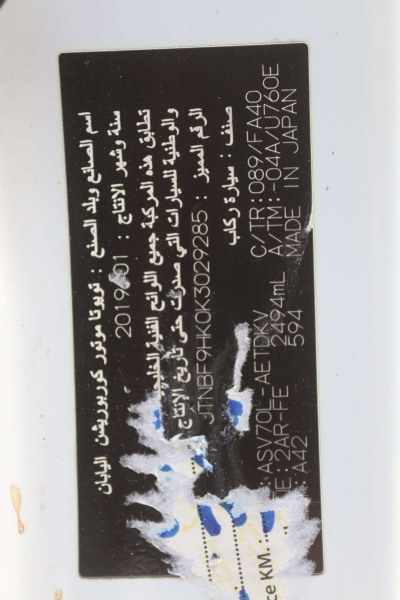 اسم الصانع وبلد الصنع : تويوتا موتور كوربوريشن اليابان
سنة وشهر الانتاج : 2019/01
تطابق هذه المركبة جميع اللوائح الفنية الخليجية
والوطنية للسيارات التي صدرت حتى تاريخ الإنتاج
الرقم المميز : JTNBF9HK0K3029285
صنف : سيارة ركاب
:ASV70L-AETDKV C/TR:089/FA40
:2AR-FE 2494mL A/TM:-04A/U760E
:A42 594 MADE IN JAPAN
KM.